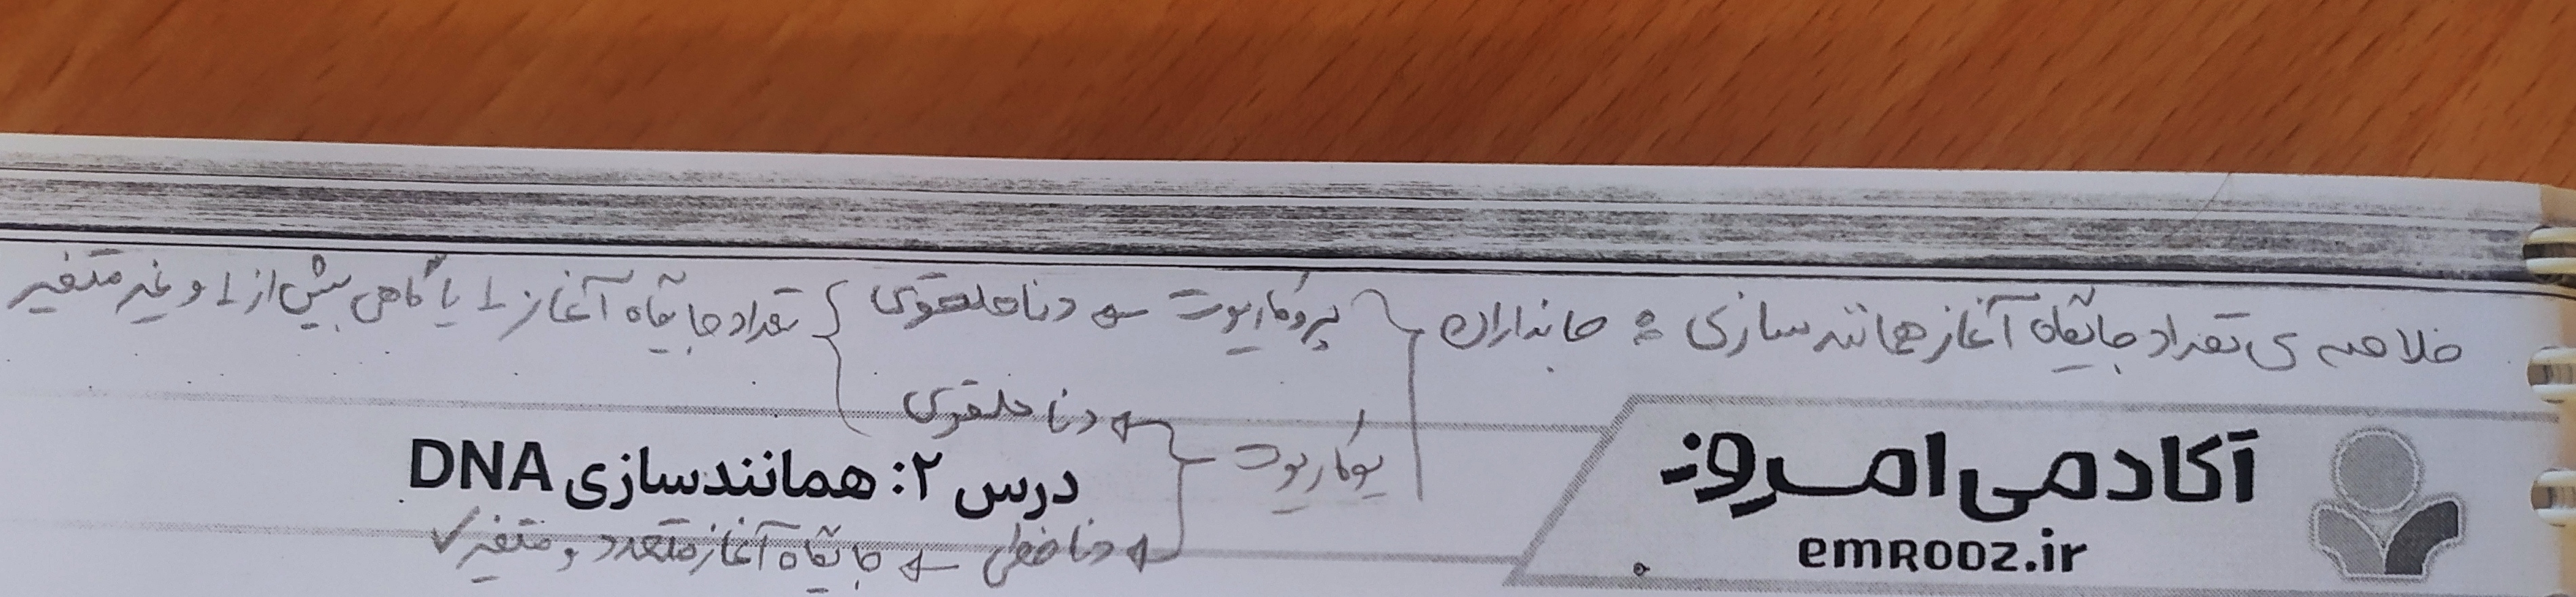 خلاصه ی تعداد جایگاه آغاز همانندسازی : جانداران
پروکاریوت ← دنا حلقوی
تعداد جایگاه آغاز ۱ یا گاهی بیش از ۱ و غیر متغیر
یوکاریوت
← دنا حلقوی
← دنا خطی ← جایگاه آغاز متعدد و متغیر ✓
آکادمی امروز
emROOZ.ir
درس ۲: همانندسازی DNA